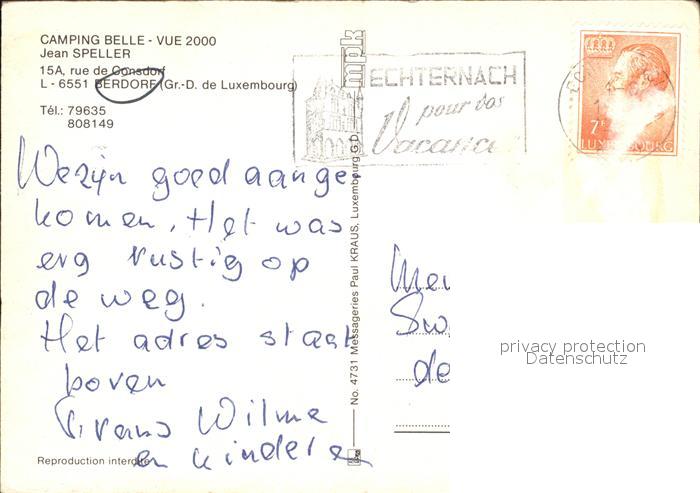 CAMPING BELLE - VUE 2000
Jean SPELLER
15A, rue de Consdorf
L - 6551 BERDORF (Gr.-D. de Luxembourg)
Tél.: 79635
808149
We zijn goed aange
komen. Het was
erg rustig op
de weg.
Het adres staat
boven
Wilma
en kinderen
Reproduction interdite
mpk
No. 4731 Messageries Paul KRAUS, Luxembourg G.D.
ECHTERNACH
pour vos
Vacances
7F
LUXEMBOURG
de
privacy protection
Datenschutz